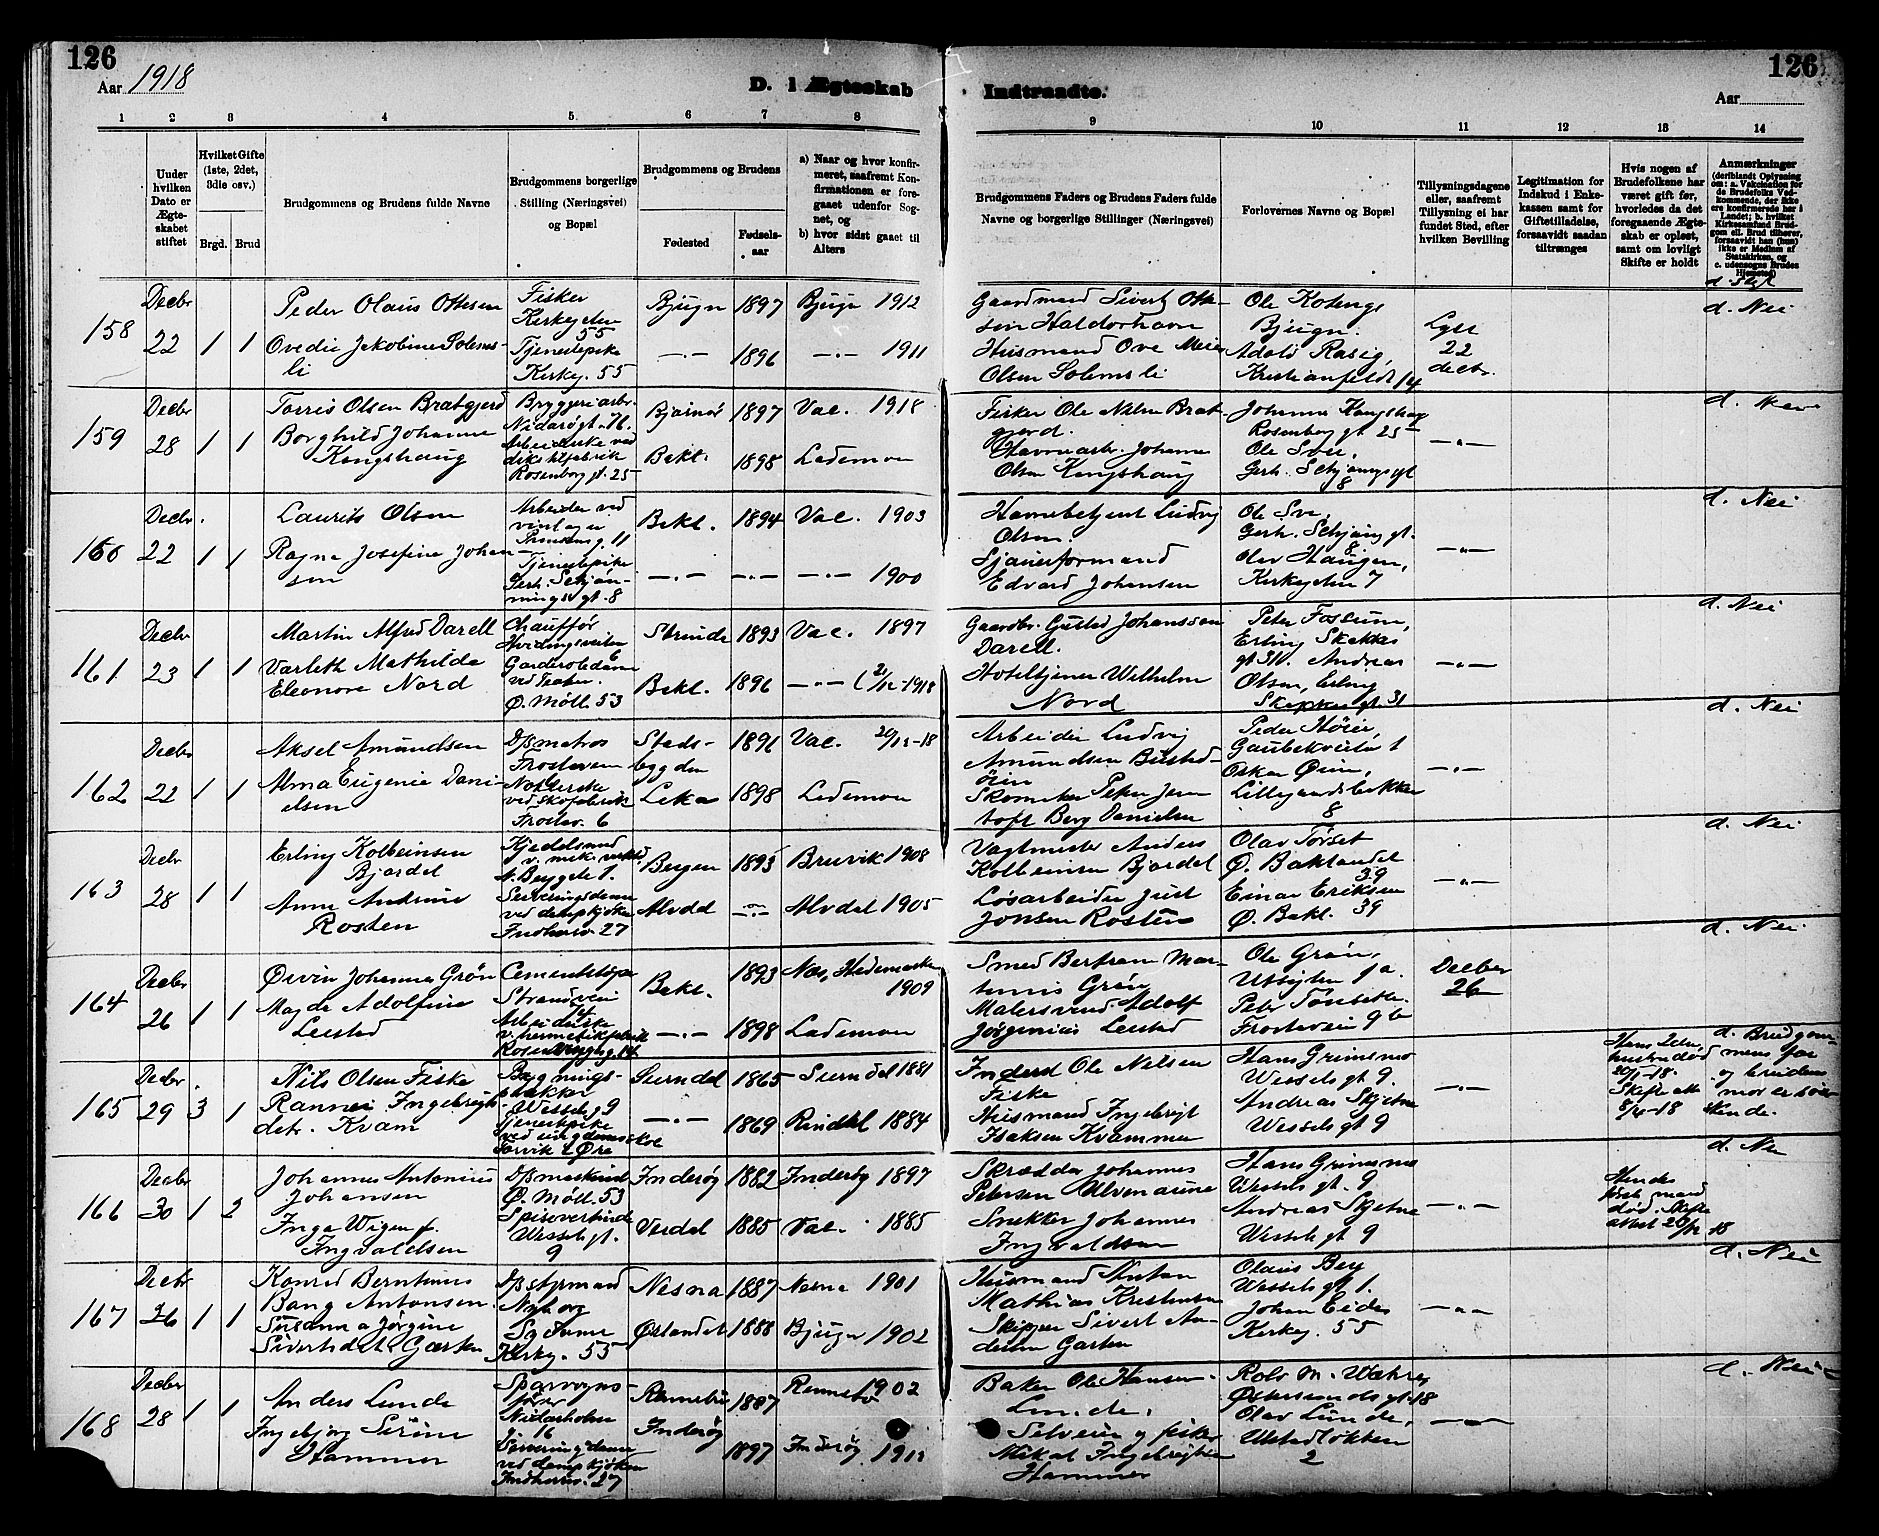 126
Aar 1918
D. I Ægteskab
Indtraadte.
126
Aar
1
2
3
4
5.
6
7
8
9
10
11
12
13
14
Under hvilken Dato er Ægteskabet stiftet
Hvilket Gifte (1ste, 2det, 3die osv.)
Brgd.
Brud
Brudgommens og Brudens fulde Navne
Brudgommens borgerlige Stilling (Næringsvei) og Bopæl
Brudgommens og Brudens
Fødested
Fødselsaar
a) Naar og hvor konfirmeret, saafremt Konfirmationen er foregaaet udenfor Sognet, og
b) hvor sidst gaaet til Alters
Brudgommens Faders og Brudens Faders fulde Navne og borgerlige Stillinger (Næringsvei)
Forlovernes Navne og Bopæl
Tillysningsdagene eller, saafremt Tillysning ei har fundet Sted, efter hvilken Bevilling
Legitimation for Indskud i Enkekassen samt for Giftetilladelse, forsaavidt saadan tiltrænges
Hvis nogen af Brudefolkene har været gift før, hvorledes da det foregaaende Ægteskab er opløst, samt om lovligt Skifte er holdt
Anmærkninger (deriblandt Oplysning om: a. Vakcination for de Brudefolks Vedkommende, der ikke ere konfirmerede her i Landet; b. hvilket Kirkesamfund Brudgom ell. Brud tilhører, forsaavidt han (hun) ikke er Medlem af Statskirken, og c. udensogns Brudes Hjemsted)
158
Decbr
22
1
1
Peder Olaus Ottesen
Ovedie Jakobine Solems-
li
Fisker
Kirkegaten
55
Tjenestepike
Kirkeg. 55
Bjugn
—"—
1897
1896
Bjugn 1912
—"— 1911
Gaardmand Sivert Otte-
sen Haldorhavn
Husmand Ove Meier
Olsen Solemsli
Ole Kotengs
Bjugn.
Adolf Rasig,
Kristianfeldt 14
Lyst
22
decbr.
d. Nei
159
Decbr
28
1
1
Torris Olsen Bratgjerd
Borghild Johanne
Kongshaug
Bryggeriarb.
Nidarøgt. 76.
Arbeiderske ved
Rosenborg gt. 25
Bjørnør
Bakl.
1897
1898
Vac. 1918
Lademoen
Fisker Ole Nilsen Brat-
gjerd.
Havnearb. Johannes
Olsen Kongshaug
Johannes Kongshaug
Rosenborg gt 25
Ole Sve,
Gerh. Schjønings gt
8
—"—
d. Nei
160
Decbr.
22
1
1
Laurits Olsen
Ragna Josefine Johan-
sen
Arbeider ved
vinlager
Tjenestepike
Gerh. Schjøn-
nings gt. 8
Bakl.
—"—
1894
—"—
Vac. 1903
—"— 1900
Havnebetjent Ludvig
Olsen.
Sjauerformand
Edvard Johansen
Ole Sve,
Gerh. Schjøn. gt.
8
Olav Haugen,
Kirkegaten 7
—"—
d. Nei
161
Decbr
23
1
1
Martin Alfred Darell
Varleth Mathilde
Eleonore Nord
Chauffør
Hvidingsveiten
6
Garderobedame
ved Teater.
Ø. Møll. 53
Strinde
Bakl.
1893
1896
Vac. 1897
—"— (2/12-1918
Gaardbr. Gustad Johanssen
Darell.
Hoteltjener Wilhelm
Nord
Peter Fossum,
Erling Skakkes
gt 31. Andreas
Olsen, Erling
Skakkes gt. 31
—"—
d. Nei
162
Decbr
22
1
1
Aksel Amundsen
Alma Eugenie Dani-
elsen
Dpsmatros
Frosteveien
Natlerske
ved Skofabrik
Frostav. 6
Stads-
bygden
Leka
1891
1898
Vac. 20/12-18
Lademoen
Arbeider Ludvig
Amundsen Bustad-
øien
Skomaker Peter Jen
toft Berg Danielsen
Peder Høier,
Gaubekveita 1
Oskar Øien,
Lillegaardsbakken
8
—"—
d. Nei
163
Decbr
28
1
1
Erling Kolbeinsen
Bjørdal
Anne Andrine
Rosten
Kjedelsmed
v. mek. verksted
Serveringsdame
ved dampkjøken
Indherrv. 27
Bergen
Alvdal
1893
—"—
Bruvik 1908
Alvdal 1905
Vagtmester Anders
Kolbeinsen Bjordal
Løsarbeider Just
Jonsen Rosten
Olav Tørset
Ø. Baklandet
39
Einar Eriksen
Ø. Bakl. 39
—"—
d. Nei
164
Decbr
26
1
1
Øivin Johannes Grøn
Magda Adolfine
Leistad
Cementstøper
Strandvei
Arbeiderske
v. hermetikfabrik
Bakl.
—"—
1893
1898
Næs, Hedemarken
1909
Lademoen
Smed Bertram Mar-
tinius Grøn
Malersvend Adolf
Jørgenius Leistad
Ole Grøn,
Peter Tønseth.
Frostavei 9b
Decber
26
165
Decbr.
29
3
1
Nils Olsen Fiske
Rannei Ingebrigts-
datr. Kvam
Bygnings-
snekker
Wesselsg 9
Tjenestepike
Surndal
—"—
1865
1869
Surndal 1881
Rindal 1884
Inderst Ole Nilsen
Fiske
Husmand Ingebrigt
Isaksen Kvammen
Hans Grimsmo
Wessels gt 9.
Andreas Skjetne
Wessels gt 9
—"—
Hans 2den
hustru død
20/1-18.
Skifteatt
8/4-18
d. Brudgom-
mens far
og brudens
mor er søs-
kende.
166
Decbr
30
1
2
Johannes Antonius
Johansen
Inga Wigen f.
Ingvaldsen
Dpsmaskinist
Ø. Møll. 53
Spisevertinde
Wessels gt.
9
Inderøy
Verdal
1882
1885
Inderøy 1897
Vac. 1885
Skrædder Johannes
Snekker Johannes
Ingvaldsen
Hans Grimsmo
Wessels gt. 9
Andreas Skjetne
Wessels gt 9
—"—
Hendes
først mand
død. Skifte
attest 20/12 18
d. Nei
167
Decbr
26
1
1
Konrad Berntinus
Bang Antonsen.
Susanna Jørgine
Sivertsdatr Garten
Dpsstyrmand
Nyborg
Sydame
Kirkeg. 55
Nesna
Ørlandet
1887
1888
Nesna 1901
Bjugn 1902
Husmand Anton
Mathias Kristensen
Skipper Sivert An-
dersen Garten
Olaus Berg
Wessels gt 1.
Johan Eides
Kirkeg. 55
—"—
d. Nei
168
Decbr
28
1
1
Anders Lunde
Ingebjørg Serine
Hammer
Sporvogns-
fører
Nidarholm
g. 16
Serveringsdame
ved dampkjøken
Indherrv. 27
Rennebu
Inderøy
1887
1897
Rennebu 1902
Inderøy 1911
Baker Ole Hansen
Lunde.
Selveier og fisker
Mikal Ingebrigtsen
Hammer
Rolv M. Wæhre
Østersunds gt. 18
Olav Lunde,
Ulstadløkken
2
—"—
d. Nei